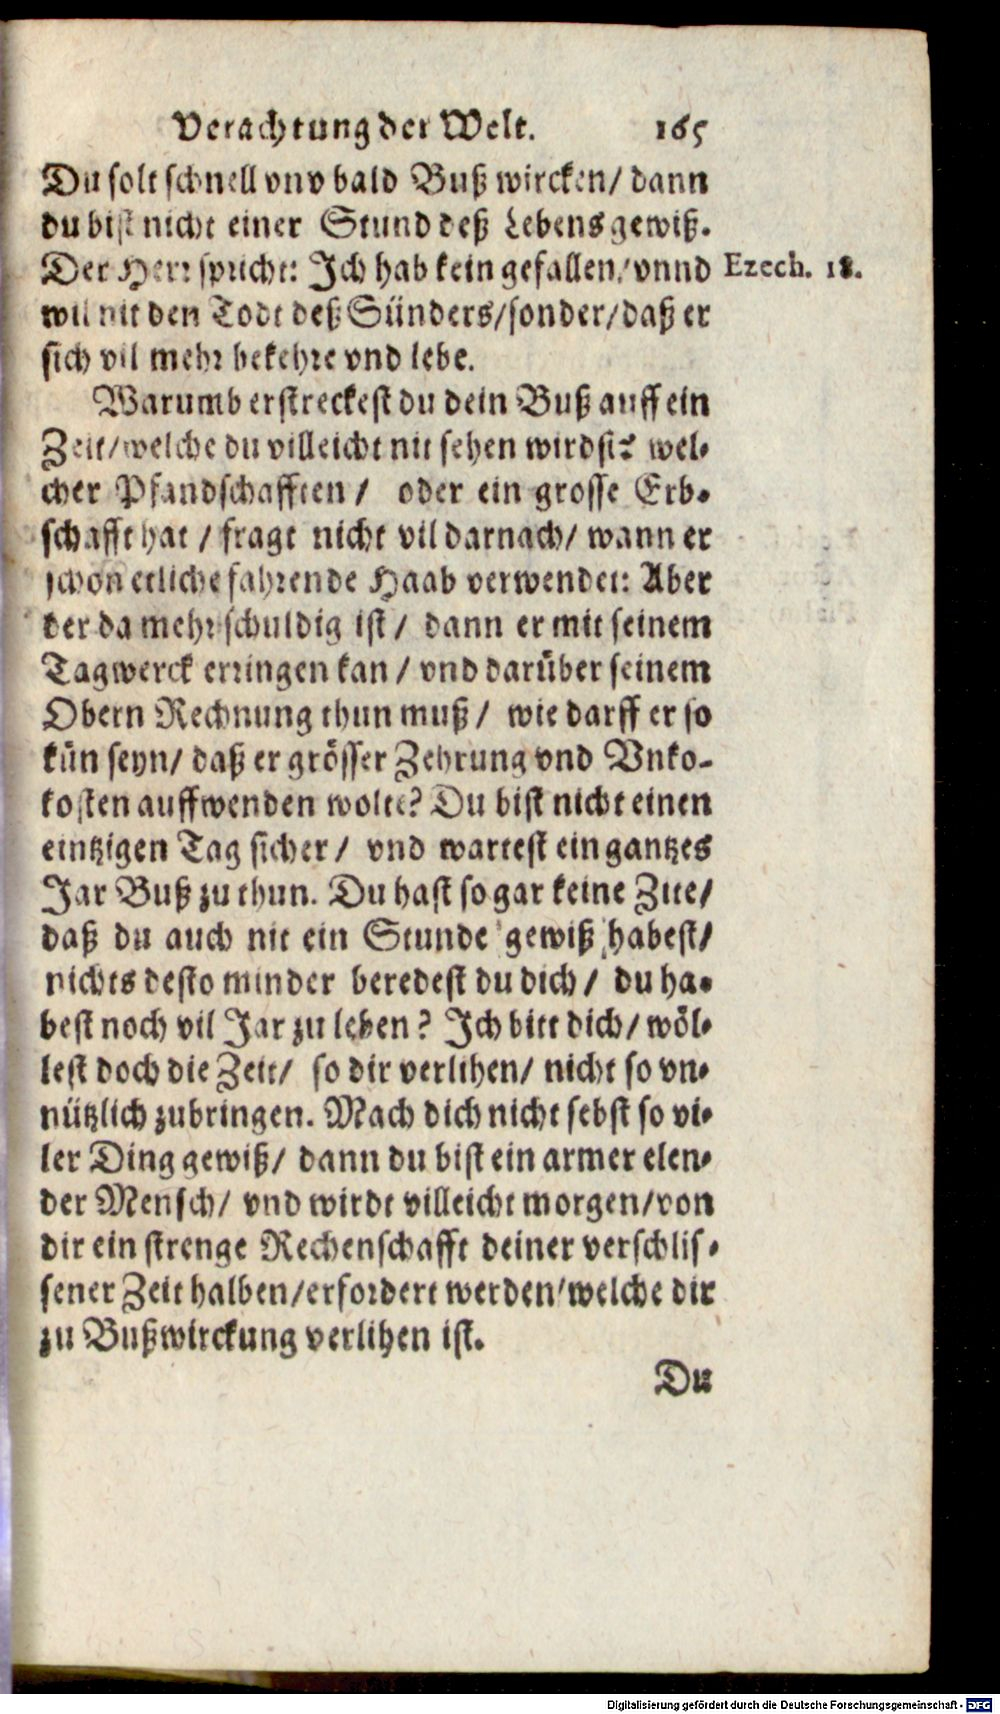 Verachtung der Welt. 165
Du solt schnell vnv bald Buß wircken/ dann
du bist nicht einer Stund deß Lebens gewiß.
Der Herr spricht: Ich hab kein gefallen/ vnnd Ezech. 18.
wil nit den Todt deß Sünders/sonder/daß er
sich vil mehr bekehre vnd lebe.
Warumb erstreckest du dein Buß auff ein
Zeit/welche du villeicht nit sehen wirdst? wel-
cher Pfandschafften/ oder ein grosse Erb-
schafft hat / fragt nicht vil darnach/ wann er
schon etliche fahrende Haab verwendet: Aber
der da mehr schuldig ist / dann er mit seinem
Tagwerck erringen kan / vnd darüber seinem
Obern Rechnung thun muß / wie darff er so
kün seyn/ daß er grösser Zehrung vnd Vnko-
kosten auffwenden wolte? Du bist nicht einen
eintzigen Tag sicher / vnd wartest ein gantzes
Jar Buß zu thun. Du hast so gar keine Zite/
daß du auch nit ein Stunde gewiß habest/
nichts desto minder beredest du dich / du ha-
best noch vil Jar zu leben? Ich bitt dich/ wöl-
lest doch die Zeit/ so dir verlihen/ nicht so vn-
nützlich zubringen. Mach dich nicht sebst so vi-
ler Ding gewiß/ dann du bist ein armer elen-
der Mensch/ vnd wirdt villeicht morgen/von
dir ein strenge Rechenschafft deiner verschlis-
sener Zeit halben/erfordert werden/welche dir
zu Bußwirckung verlihen ist.
Du
Digitalisierung gefördert durch die Deutsche Forschungsgemeinschaft - DFG